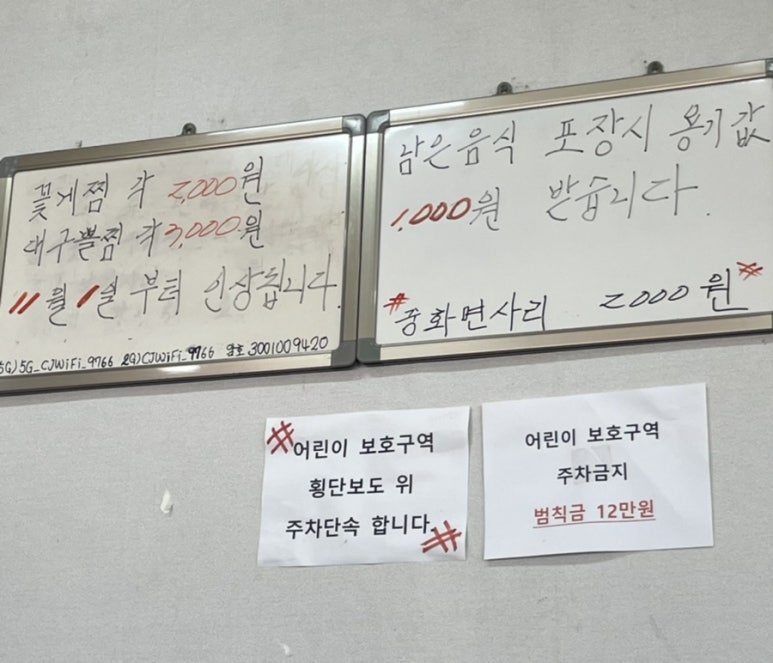 꽃게찜 각 2,000원
대구뽈찜 각 3,000원
11월 1일 부터 인상됩니다.
5G)5G_CJWiFi_9766 2G)CJWiFi_9766 암호 3001009420
남은음식 포장시 용기값
1,000원 받습니다.
중화면사리 2000원
어린이 보호구역
횡단보도 위
주차단속 합니다.
어린이 보호구역
주차금지
범칙금 12만원